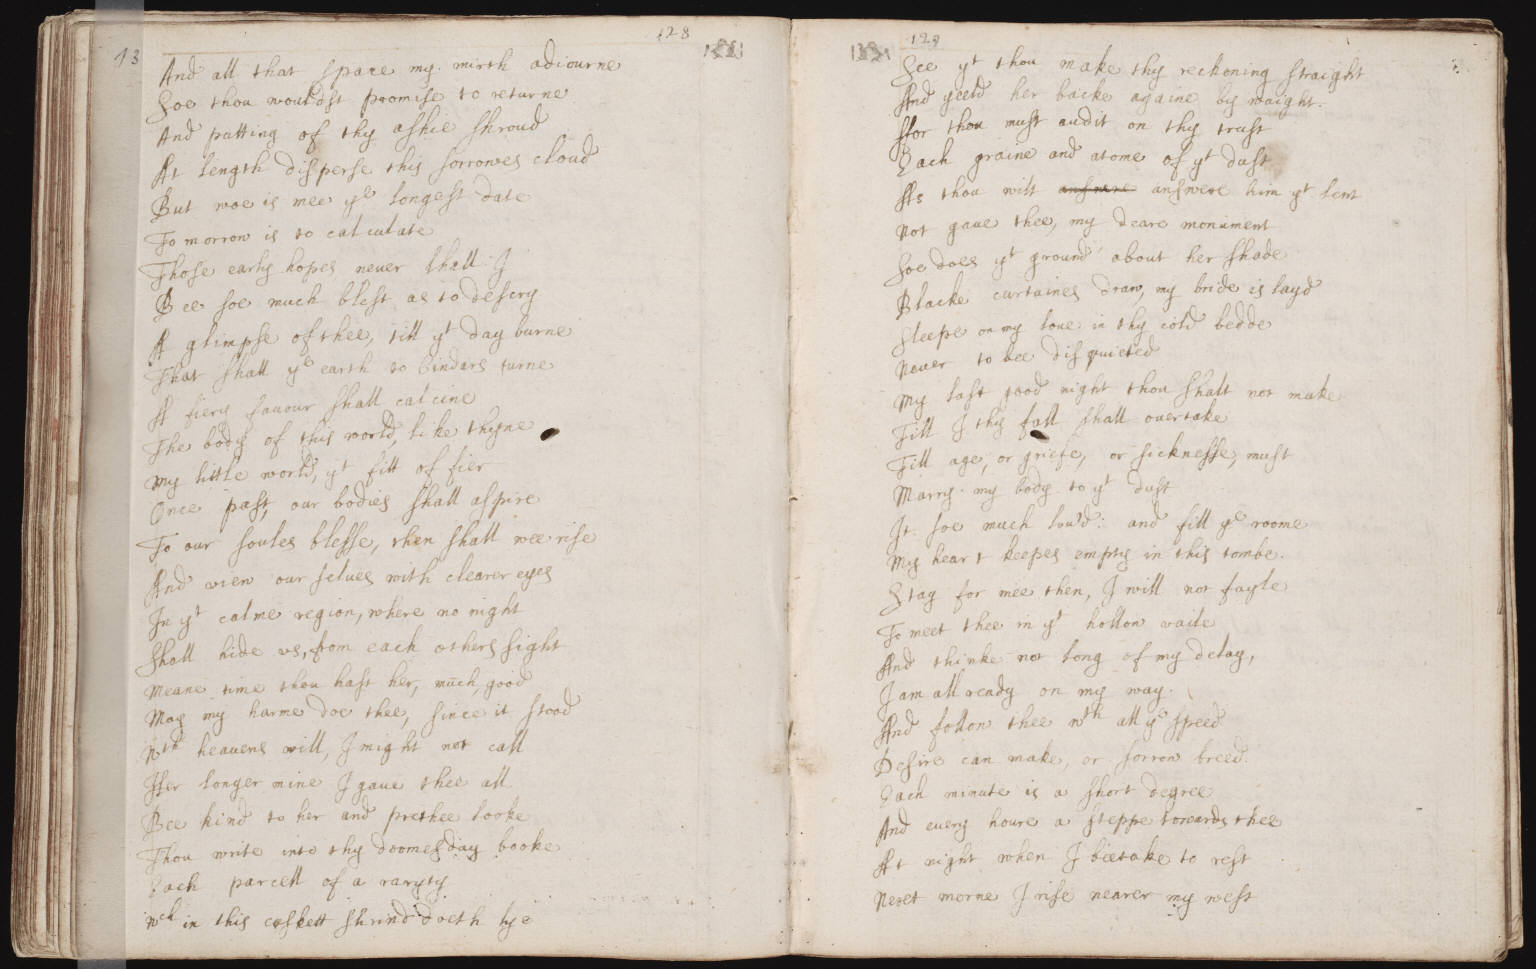 13
128
And all that space my mirth adiourne
Soe thou wouldst promise to returne
And putting of thy ashie shroud
At length disperse this sorrowes cloud
But woe is mee ye longest date
To morrow is to calculate
Those early hopes never shall I
Bee soe much blest as to descry
A glimpse of thee, till yt day burne
That shall ye earth to Cindars turne
A fiery favour shall calcine
The body of this world, like thyne
my little world, yt fitt of fier
Once past, our bodies shall aspire
To our soules blesse, then shall wee rise
And view our selues with clearer eyes
In yt calme region, where no night
Shall hide us, from each others sight
Meane time thou hast her, much good
May my harme doe thee, since it stood
Wth heauens will, I might not call
Her longer mine I gaue thee all
Bee kind to her and prethee looke
Thou write into thy doomesday booke
Each parcell of a raryty
Wch in this caskett shrind doeth lye
129
See yt thou make thy reckoning straight
And yeeld her backe againe by waight.
For thou must audit on thy trust
Each graine and atome of yt dust
As thou wilt answere answere him yt lent
Not gaue thee, my deare monument
Soe does yt ground about her shade
Blacke curtaines draw, my bride is layd
Sleepe on my loue in thy cold bedde
Never to bee disquieted
My last good night thou shalt not make
Till I thy fall shall overtake
Till age, or griefe, or sicknesse, must
Marry my body to yt dust
It soe much lou'd: and fill ye roome
My heart keepes empty in this tombe.
Stay for mee then, I will not fayle
To meet thee in yt hollow vaile
And thinke not long of my delay,
I am all ready on my way.
And follow thee wth all ye speed
Desire can make, or sorrow breed.
Each minute is a short degree
And euery houre a steppe towards thee
At night when I beetake to rest
Next morne I rise nearer my west